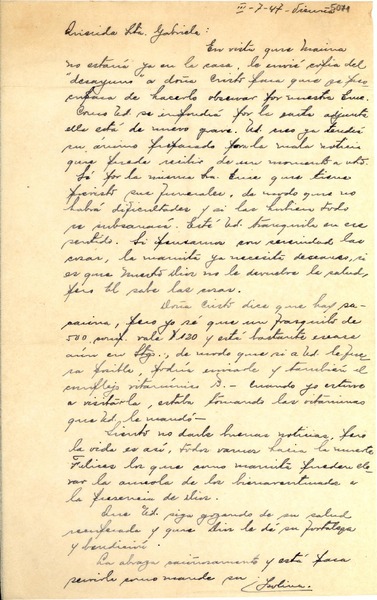 III-7-47-Viernes
Querida Sta. Gabriela:
En vista que Maina
no estaría ya en la casa, le envié copia del
"desayuno" a doña Cristo para que se preo-
cupara de hacerlo observar por nuestra Luce.
Como Ud. se impondrá por la carta adjunta
ella está de nuevo grave. Ud. creo ya tendrá
su ánimo preparado para la mala noticia
que puede recibir de un momento a otro.
Sé por la misma Sra. Luce que tiene
previsto sus funerales, de modo que no
habrá dificultades y si las hubiera todo
se subsanará. Esté Ud. tranquila en ese
sentido. Si pensamos con serenidad las
cosas, la mamita ya necesita descanso, si
es que Nuestro Dios no le devuelve la salud,
pero Él sabe las cosas.
Doña Cristo dice que hay sa-
carina, pero yo sé que un frasquito de
500 comp. vale $120 y está bastante escaso
aún en Stgo., de modo que si a Ud. le fue-
ra posible, podría enviarle y también el
complejo vitamínico B.- Cuando yo estuve
a visitarla, estaba tomando las vitaminas
que Ud. le mandó-
Siento no darle buenas noticias, pero
la vida es así, todos vamos hacia la muerte.
Felices los que como mamita pueden lle-
var la aureola de los bienaventurados a
la presencia de Dios.
Que Ud. siga gozando de su salud
recuperada y que Dios le dé su fortaleza
y bendición.
La abraza cariñosamente y está para
servirle como mande su